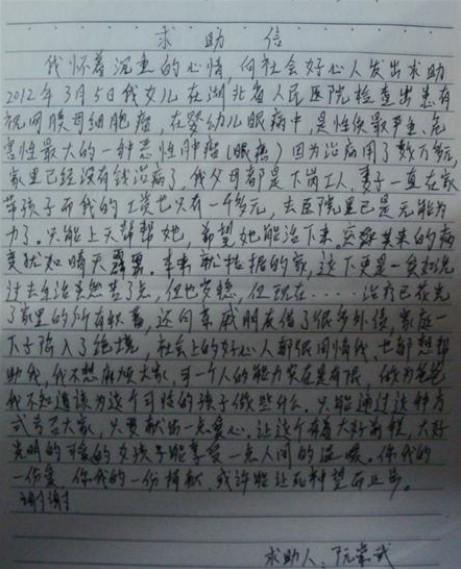 求助信
我怀着沉重的心情,向社会好心人发出求助
2012年3月5日我女儿在湖北省人民医院检查出患有
视网膜母细胞瘤,在婴幼儿眼病中,是性质最严重、危
害性最大的一种恶性肿瘤(眼癌)因为治病用了数万多元,
家里已经没有钱治病了,我父母都是下岗工人,妻子一直在家
带孩子而我的工资也只有一千多元,去医院里已是无能为
力了。只能上天帮帮她,希望她能治下来。突如其来的病
变犹如晴天霹雳。本来就拮据的家,这下更是一贫如洗
过去生活虽然苦了点,但也安稳,但现在……治疗已花光
了家里的所有积蓄,还向亲戚朋友借了很多外债,家庭一
下子陷入了绝境,社会上的好心人都很同情我,也都想帮
助我,我不想麻烦大家,可一个人的能力实在是有限,做为爸爸
我不知道该为这个可怜的孩子做些什么。只能通过这种方
式告之大家,只要献出一点爱心。让这个有着大好前程,大好
光明的可怜的女孩子能享受一点人间的温暖。你我的
一份爱,你我的一份捐献,或许能让死神望而止步。
谢谢
求助人:阮崇武